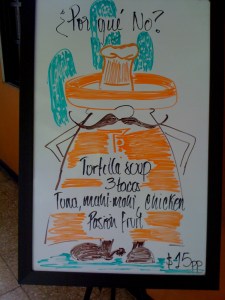 ¿Por qué No?
Tortilla soup
3 tacos
Tuna, mahi-mahi, chicken
Pasión Fruit
$15pp